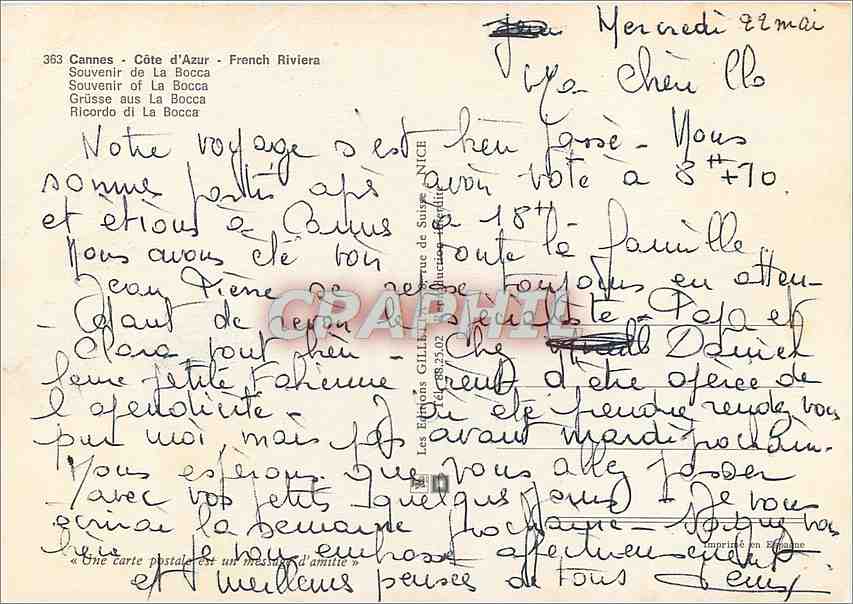 Mercredi 22 mai
363 Cannes - Côte d'Azur - French Riviera
Souvenir de La Bocca
Souvenir of La Bocca
Grüsse aus La Bocca
Ricordo di La Bocca
Ma chère Clo
Notre voyage s'est bien passé - Nous
sommes partis après avoir voté à 8H+10
et étions à Cannes à 18H
Nous avons été voir toute la famille..
Jean Pierre se repose toujours en atten-
- dant de revoir le spécialiste - Papa et
Clara vont bien - Chez Daniel
leur petite Fabienne vient d'être opérée de
l'apendicite - J'ai été prendre rendez vous
pour moi mais pas avant mardi prochain.
Nous espérons que vous allez passer
avec vos petits quelques jours - Je vous
écrirai la semaine prochaine - Soignez vous
bien je vous embrasse affectueusement
et meilleures pensées de tous
Les Editions GILLETTA rue de Suisse - NICE
Tél. 88.25.02 Reproduction interdite
Imprimé en Espagne
« Une carte postale est un message d'amitié »
CPAPHIL